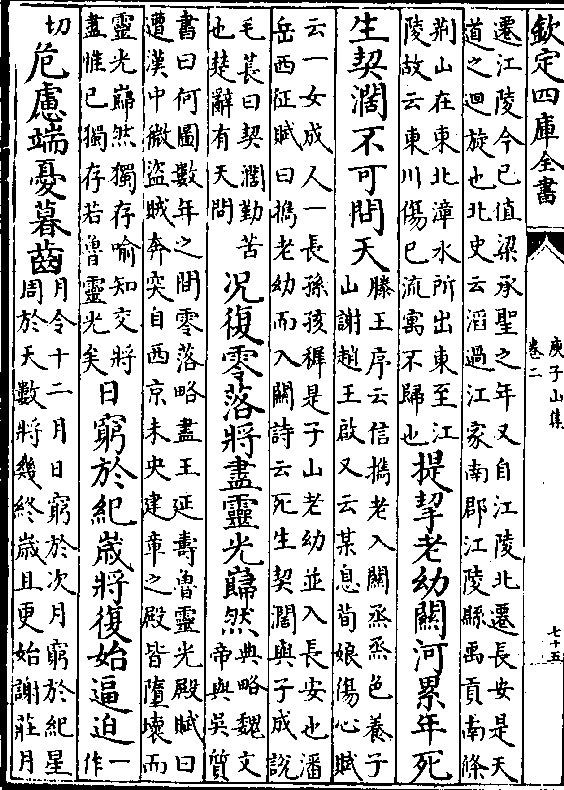 欽定四庫全書
庾子山集
卷二
七十五
遷江陵今已值梁承聖之年又自江陵北遷長安是天
道之迴旋也北史云滔過江家南郡江陵縣禹貢南條
荆山在東北漳水所出東至江
陵故云東川傷已流寓不歸也
提挈老幼關河累年死
生契濶不可問天
滕王序云信擕老入關烝烝色養子
山謝趙王啟又云某息荀娘傷心賦
云一女成人一長孫孩穉是子山老幼並入長安也潘
岳西征賦曰擕老幼而入關詩云死生契濶與子成說
毛萇曰契濶勤苦
也楚辭有天問
况復零落將盡靈光巋然
典略魏文
帝與吳質
書曰何圖數年之間零落略盡王延壽魯靈光殿賦曰
遭漢中微盜賊奔突自西京未央建章之殿皆墮壞而
靈光巋然獨存喻知交將
盡惟已獨存若魯靈光矣
日窮於紀歲將復始逼迫
一作
切
危慮端憂暮齒
月令十二月日窮於次月窮於紀星
周於天數將幾終歲且更始謝莊月